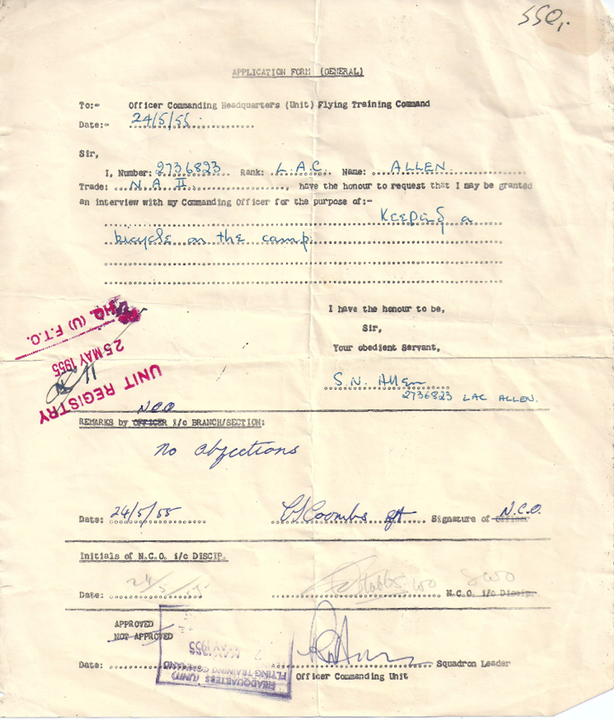 550,-
APPLICATION FORM (GENERAL)
To:- Officer Commanding Headquarters (Unit) Flying Training Command
Date:- 24/5/55
Sir,
I, Number: 2736823 Rank: L.A.C. Name: ALLEN
Trade: N.A. II, have the honour to request that I may be granted
an interview with my Commanding Officer for the purpose of:-
Keeping a
bicycle on the camp
I have the honour to be,
Sir,
Your obedient Servant,
S.N. Allen
2736823 LAC ALLEN.
H.Q. (U) F.T.C.
25 MAY 1955
UNIT REGISTRY
N.C.O
REMARKS by OFFICER i/c BRANCH/SECTION:
No objections
Date: 24/5/55 Coombs Signature of Officer N.C.O.
Initials of N.C.O. i/c DISCIP.
Date: 24/5 WO SWO N.C.O. i/c Discip.
APPROVED
NOT APPROVED
MAY 1955
HEADQUARTERS (UNIT)
FLYING TRAINING COMMAND
Date: Squadron Leader
Officer Commanding Unit